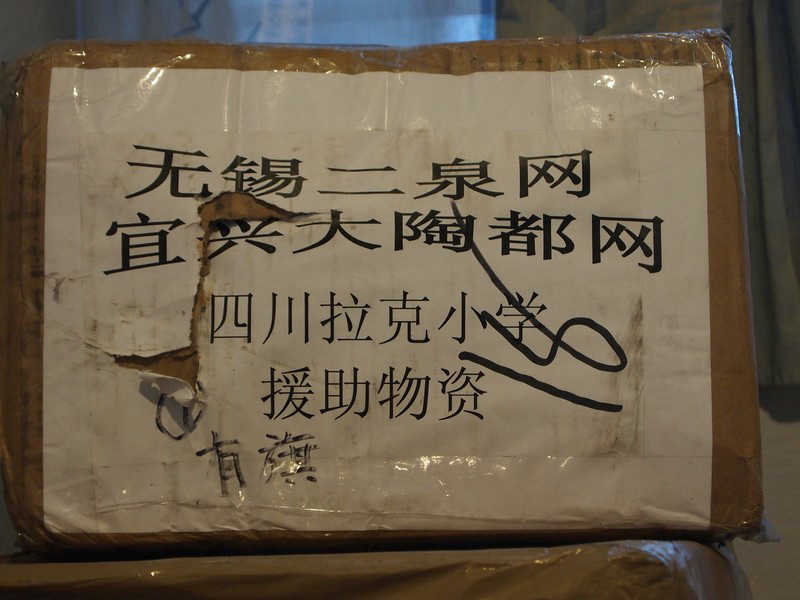 无锡二泉网
宜兴大陶都网
四川拉克小学
援助物资
有旗